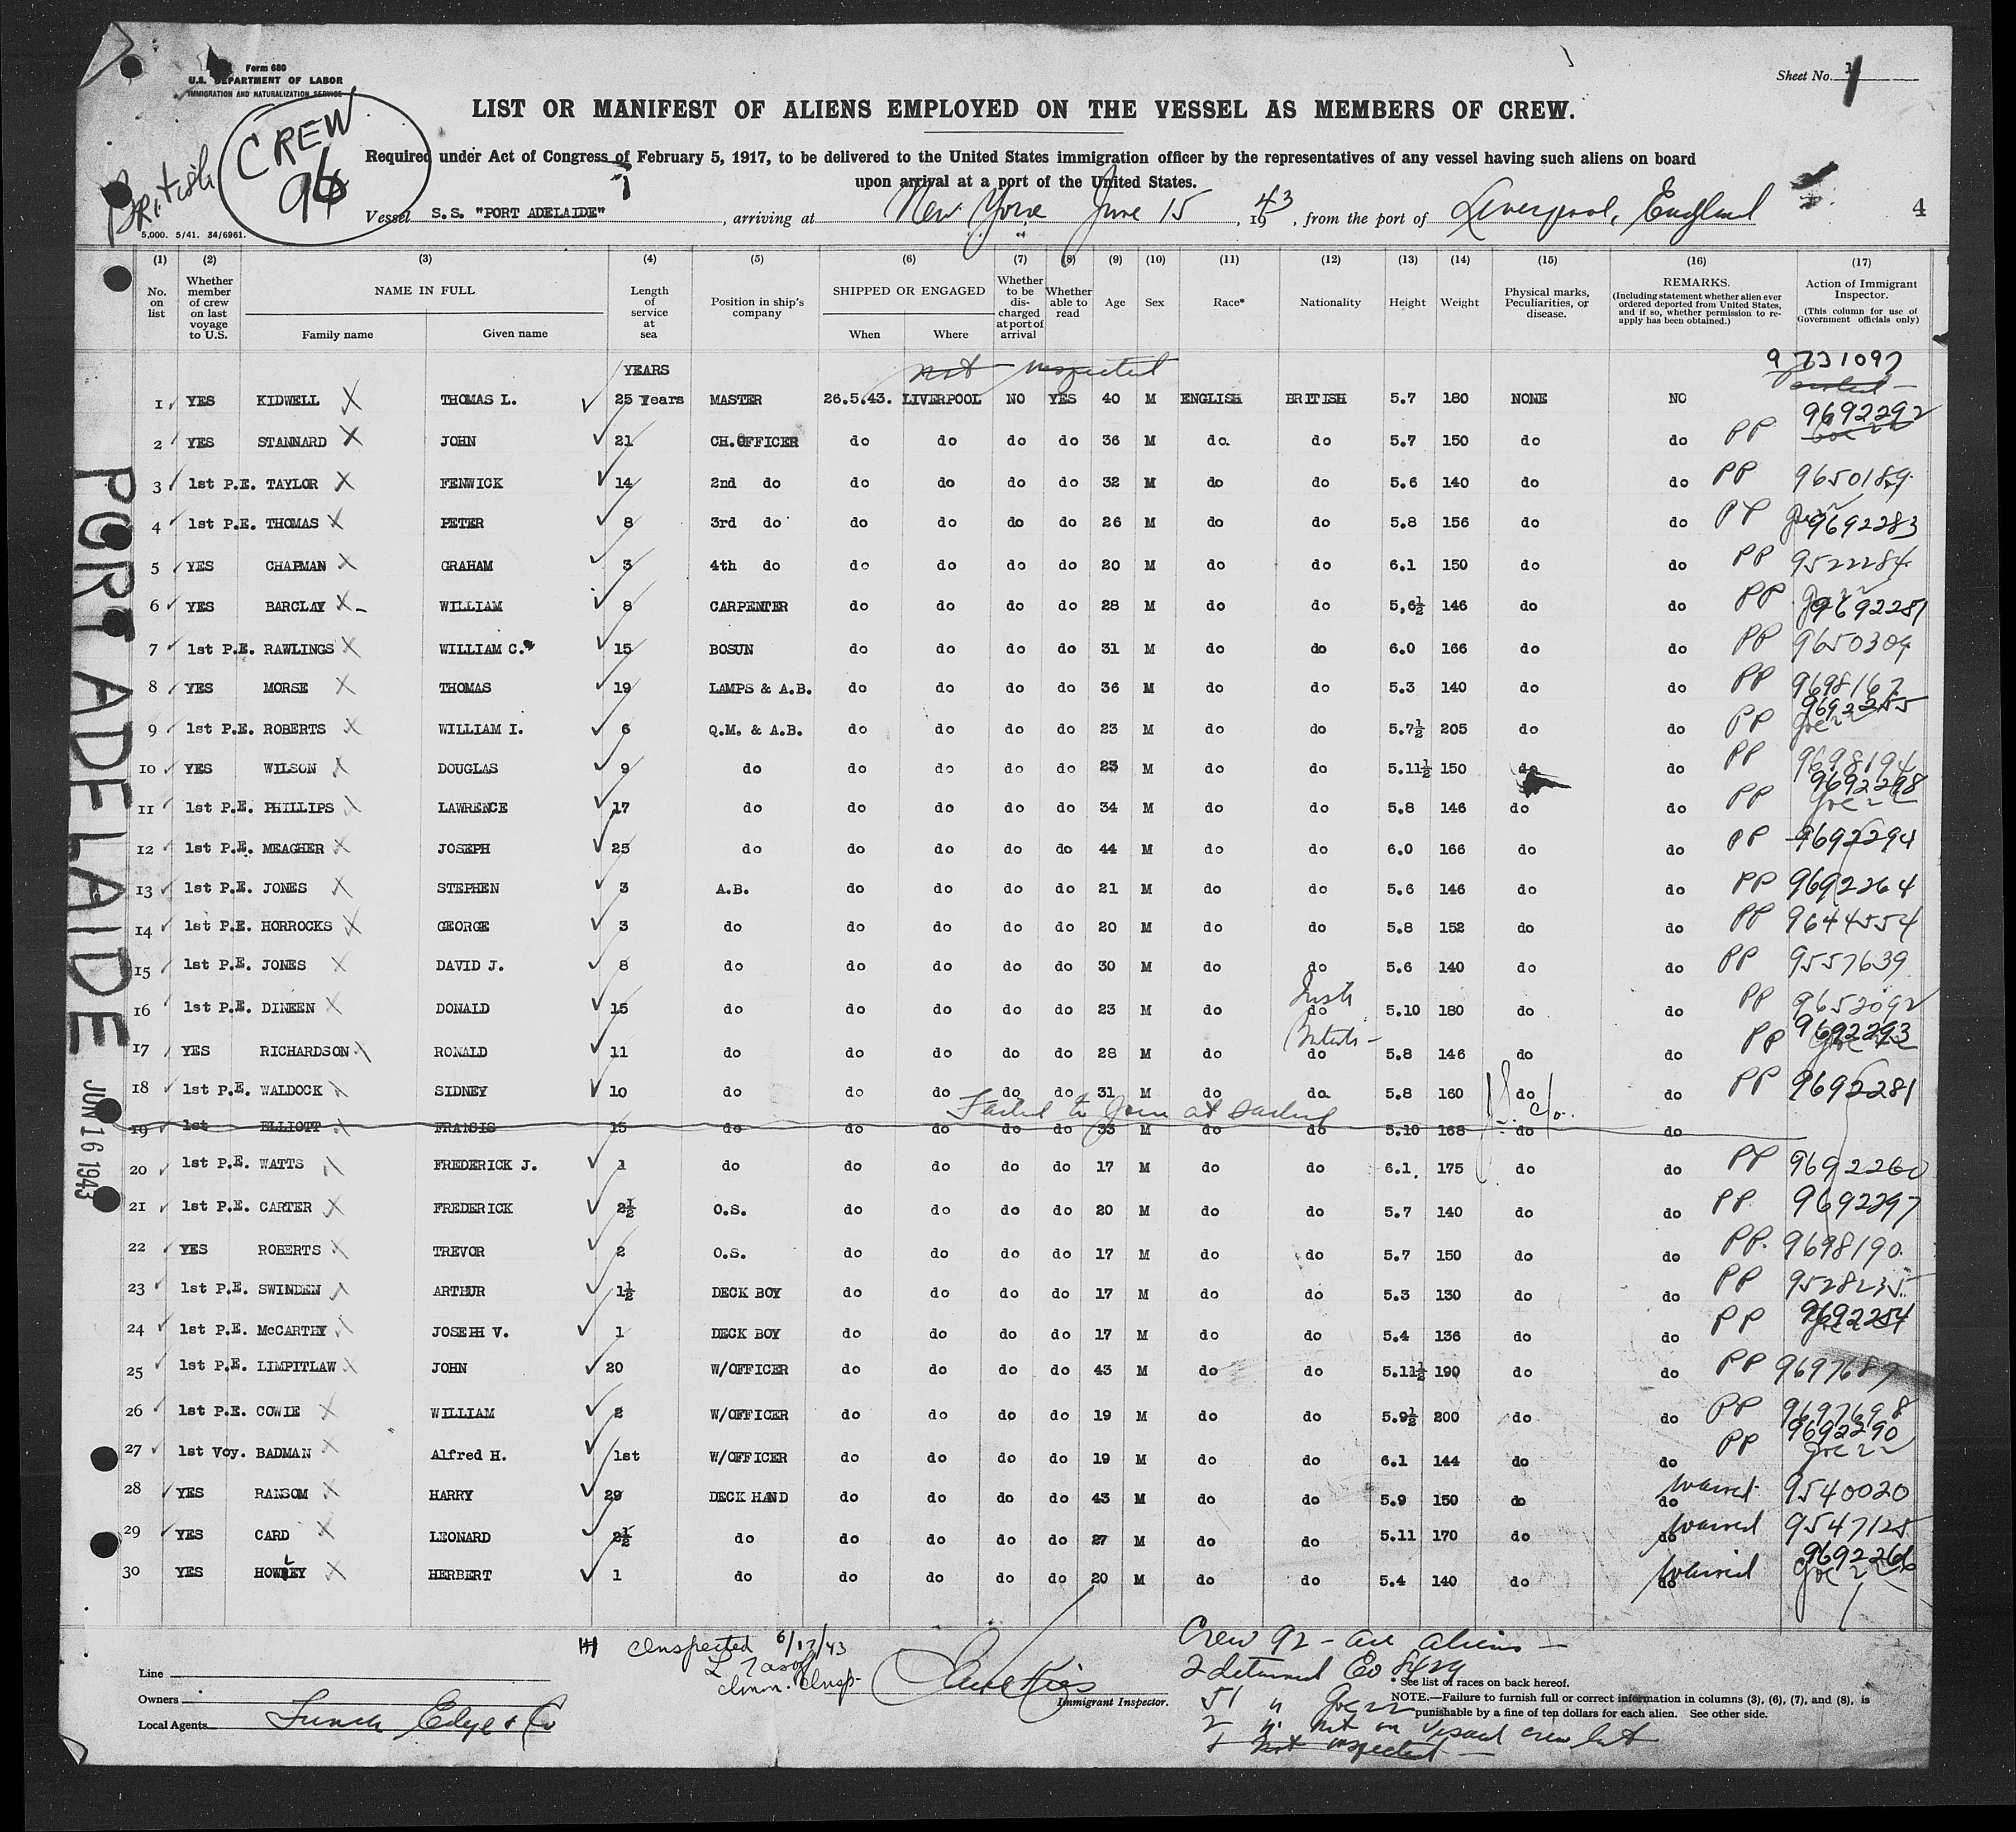 Form 680
U.S. DEPARTMENT OF LABOR
IMMIGRATION AND NATURALIZATION SERVICE
Sheet No. 1
LIST OR MANIFEST OF ALIENS EMPLOYED ON THE VESSEL AS MEMBERS OF CREW.
British
CREW
96
Required under Act of Congress of February 5, 1917, to be delivered to the United States immigration officer by the representatives of any vessel having such aliens on board
upon arrival at a port of the United States.
Vessel S.S. "PORT ADELAIDE", arriving at New York June 15, 1943, from the port of Liverpool, England
4
5,000. 5/41. 34/6961.
(1) (2) (3) (4) (5) (6) (7) (8) (9) (10) (11) (12) (13) (14) (15) (16) (17)
No. on list
Whether member of crew on last voyage to U.S.
NAME IN FULL
Family name
Given name
Length of service at sea
Position in ship's company
SHIPPED OR ENGAGED
When
Where
Whether to be discharged at port of arrival
Whether able to read
Age
Sex
Race*
Nationality
Height
Weight
Physical marks, Peculiarities, or disease.
REMARKS.
(Including statement whether alien ever ordered deported from United States, and if so, whether permission to reapply has been obtained.)
Action of Immigrant Inspector.
(This column for use of Government officials only)
YEARS not inspected 9731097
1 YES KIDWELL THOMAS L. 25 Years MASTER 26.5.43. LIVERPOOL NO YES 40 M ENGLISH BRITISH 5.7 180 NONE NO
2 YES STANNARD JOHN 21 CH.OFFICER do do do do 36 M do. do 5.7 150 do do PP 9692292
3 1st P.E. TAYLOR FENWICK 14 2nd do do do do do 32 M do do 5.6 140 do do PP 9650189
4 1st P.E. THOMAS PETER 8 3rd do do do do do 26 M do do 5.8 156 do do PP 9692283
5 YES CHAPMAN GRAHAM 3 4th do do do do do 20 M do do 6.1 150 do do PP 9522284
6 YES BARCLAY WILLIAM 8 CARPENTER do do do do 28 M do do 5,6½ 146 do do PP 9692287
7 1st P.E. RAWLINGS WILLIAM C. 15 BOSUN do do do do 31 M do do 6.0 166 do do PP 9650309
8 YES MORSE THOMAS 19 LAMPS & A.B. do do do do 36 M do do 5.3 140 do do PP 9698167
9 1st P.E. ROBERTS WILLIAM I. 6 Q.M. & A.B. do do do do 23 M do do 5.7½ 205 do do PP 9692255
10 YES WILSON DOUGLAS 9 do do do do do 23 M do do 5.11½ 150 do do PP 9698194
11 1st P.E. PHILLIPS LAWRENCE 17 do do do do do 34 M do do 5.8 146 do do PP 9692298
12 1st P.E. MEAGHER JOSEPH 25 do do do do do 44 M do do 6.0 166 do do PP 9692294
13 1st P.E. JONES STEPHEN 3 A.B. do do do do 21 M do do 5.6 146 do do PP 9692264
14 1st P.E. HORROCKS GEORGE 3 do do do do do 20 M do do 5.8 152 do do PP 9644554
15 1st P.E. JONES DAVID J. 8 do do do do do 30 M do do 5.6 140 do do PP 9557639
16 1st P.E. DINEEN DONALD 15 do do do do do 23 M do do 5.10 180 do do PP 9652092
17 YES RICHARDSON RONALD 11 do do do do do 28 M do do 5.8 146 do do PP 9692293
18 1st P.E. WALDOCK SIDNEY 10 do do do do do 31 M do do. 5.8 160 do do PP 9692281
Failed to join at sailing
19 1st ELLIOTT FRANSIS 15 do do do do do 33 M do do 5.10 168 do do
20 1st P.E. WATTS FREDERICK J. 1 do do do do do 17 M do do 6.1. 175 do do PP 9692260
21 1st P.E. CARTER FREDERICK 2½ O.S. do do do do 20 M do do 5.7 140 do do PP 9692297
22 YES ROBERTS TREVOR 2 O.S. do do do do 17 M do do 5.7 150 do do PP. 9698190
23 1st P.E. SWINDEN ARTHUR 1½ DECK BOY do do do do 17 M do do 5.3 130 do do PP 9528235
24 1st P.E. McCARTHY JOSEPH V. 1 DECK BOY do do do do 17 M do do 5.4 136 do do PP 9692254
25 1st P.E. LIMPITLAW JOHN 20 W/OFFICER do do do do 43 M do do 5.11½ 190 do do PP 9697687
26 1st P.E. COWIE WILLIAM 2 W/OFFICER do do do do 19 M do do 5.9½ 200 do do PP 9697698
27 1st Voy. BADMAN Alfred H. 1st W/OFFICER do do do do 19 M do do 6.1 144 do do PP 9692290
28 YES RANSOM HARRY 29 DECK HAND do do do do 43 M do do 5.9 150 do do Waived 9540020
29 YES CARD LEONARD 2½ do do do do do 27 M do do 5.11 170 do do Waived 9547125
30 YES HOWLEY HERBERT 1 do do do do do 20 M do do 5.4 140 do do Waived 9692266
PORT ADELAIDE
JUN 16 1943
Inspected 6/17/43
Imm. Insp.
Immigrant Inspector.
Crew 92 - all aliens -
2 detained Eo 8429
51 "
2 " not on visaed crew list
1 not inspected
Line
Owners
Local Agents Funch Edye & Co
* See list of races on back hereof.
NOTE.—Failure to furnish full or correct information in columns (3), (6), (7), and (8), is
punishable by a fine of ten dollars for each alien. See other side.